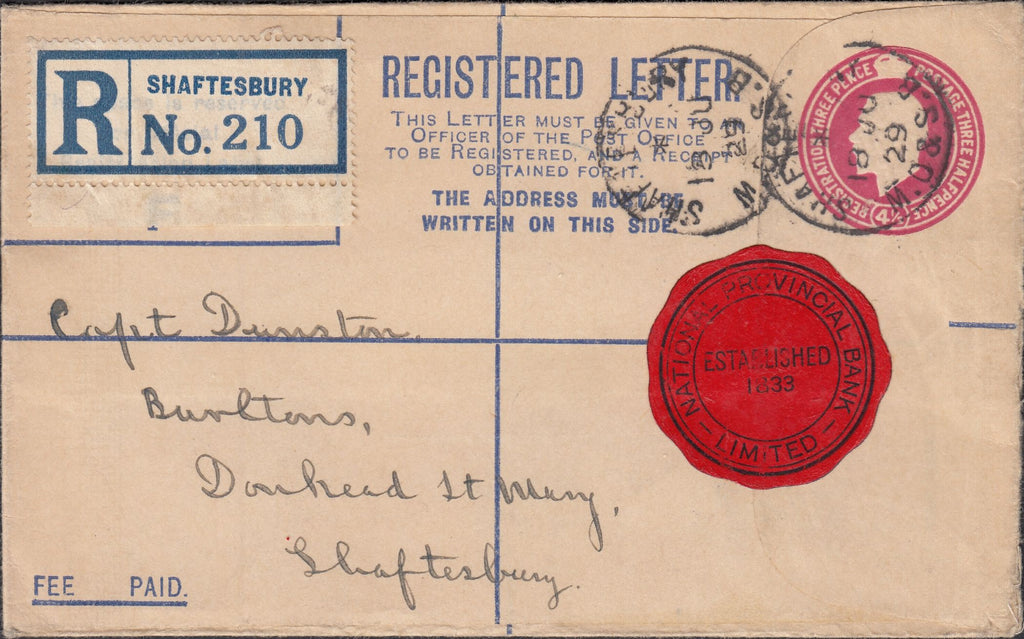 R
SHAFTESBURY
No. 210
REGISTERED LETTER.
THIS LETTER MUST BE GIVEN TO AN
OFFICER OF THE POST OFFICE
TO BE REGISTERED, AND A RECEIPT
OBTAINED FOR IT.
THE ADDRESS MUST BE
WRITTEN ON THIS SIDE.
SHAFTESBURY S.B.
18 JU
29
M.O &
SHAFTESBURY
18 JU
29
M.O & S.B
REGISTRATION THREE PENCE
POSTAGE THREE HALFPENCE
4½
NATIONAL PROVINCIAL BANK
ESTABLISHED
1833
– LIMITED –
Capt Dunston.
Burltons,
Donhead St Mary,
Shaftesbury.
FEE PAID.